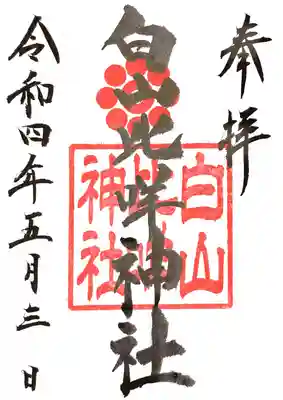 奉拝
白山比咩神社
白山
神社
令和四年五月三日